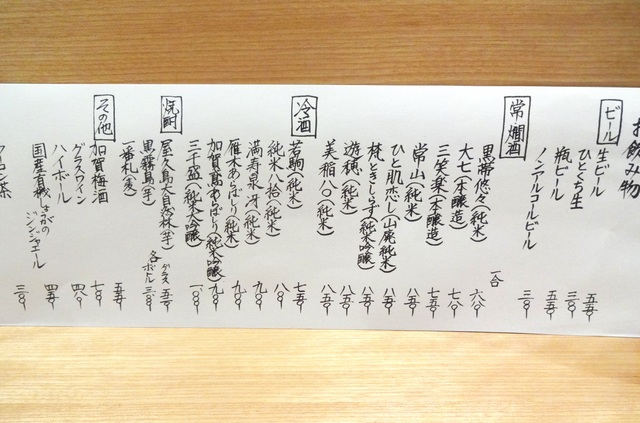 お飲み物
ビール
生ビール 五五〇
ひとくち生 三五〇
瓶ビール 五五〇
ノンアルコールビール 三五〇
常・燗酒
一合
黒帯悠々(純米) 六八〇
大七(本醸造) 七八〇
三笑楽(本醸造) 七五〇
常山(純米) 八五〇
ひと肌恋し(山廃純米) 八五〇
梵ときしらず(純米吟醸) 八五〇
遊穂(純米) 八五〇
美稲八〇(純米) 八五〇
冷酒
若駒(純米) 七五〇
純米八拾(純米) 八〇〇
満寿泉・冴(純米) 九〇〇
雁木あらばしり(純米) 九〇〇
加賀鳶あらばしり(純米吟醸) 九〇〇
三千盛(純米大吟醸) 一、〇〇〇
焼酎
屋久島大自然林(芋) グラス 五五〇
黒霧島(芋) 各ボトル
一番札(麦)
その他
加賀梅酒 五五〇
グラスワイン 七〇〇
ハイボール 四八〇
国産有機しょうがのジンジャエール 四五〇
ウーロン茶 三五〇